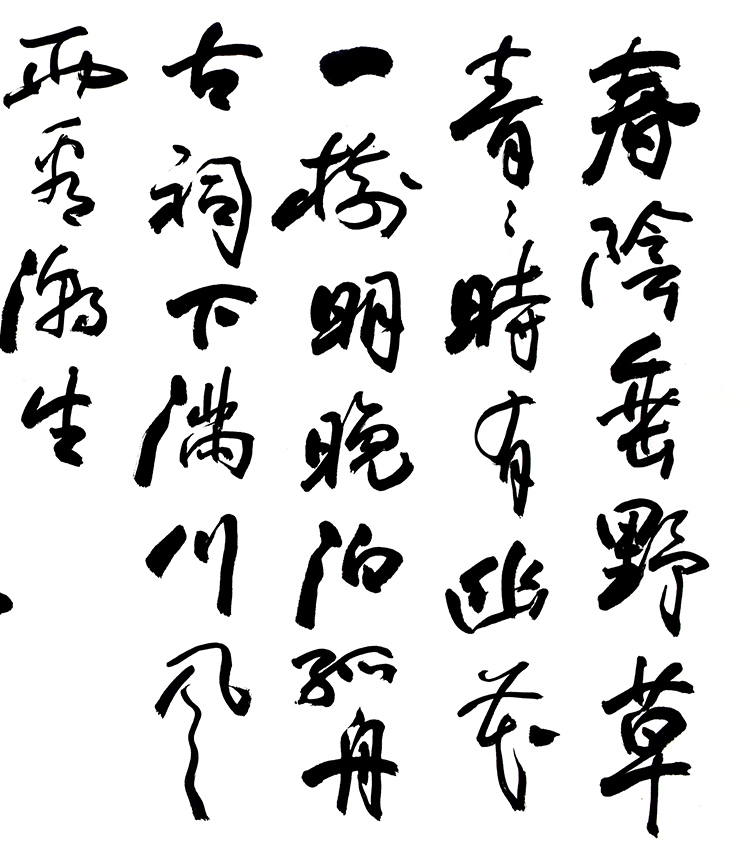 春陰垂野草
青々時有幽花
一樹明晚泊孤舟
古祠下滿川風
雨看潮生